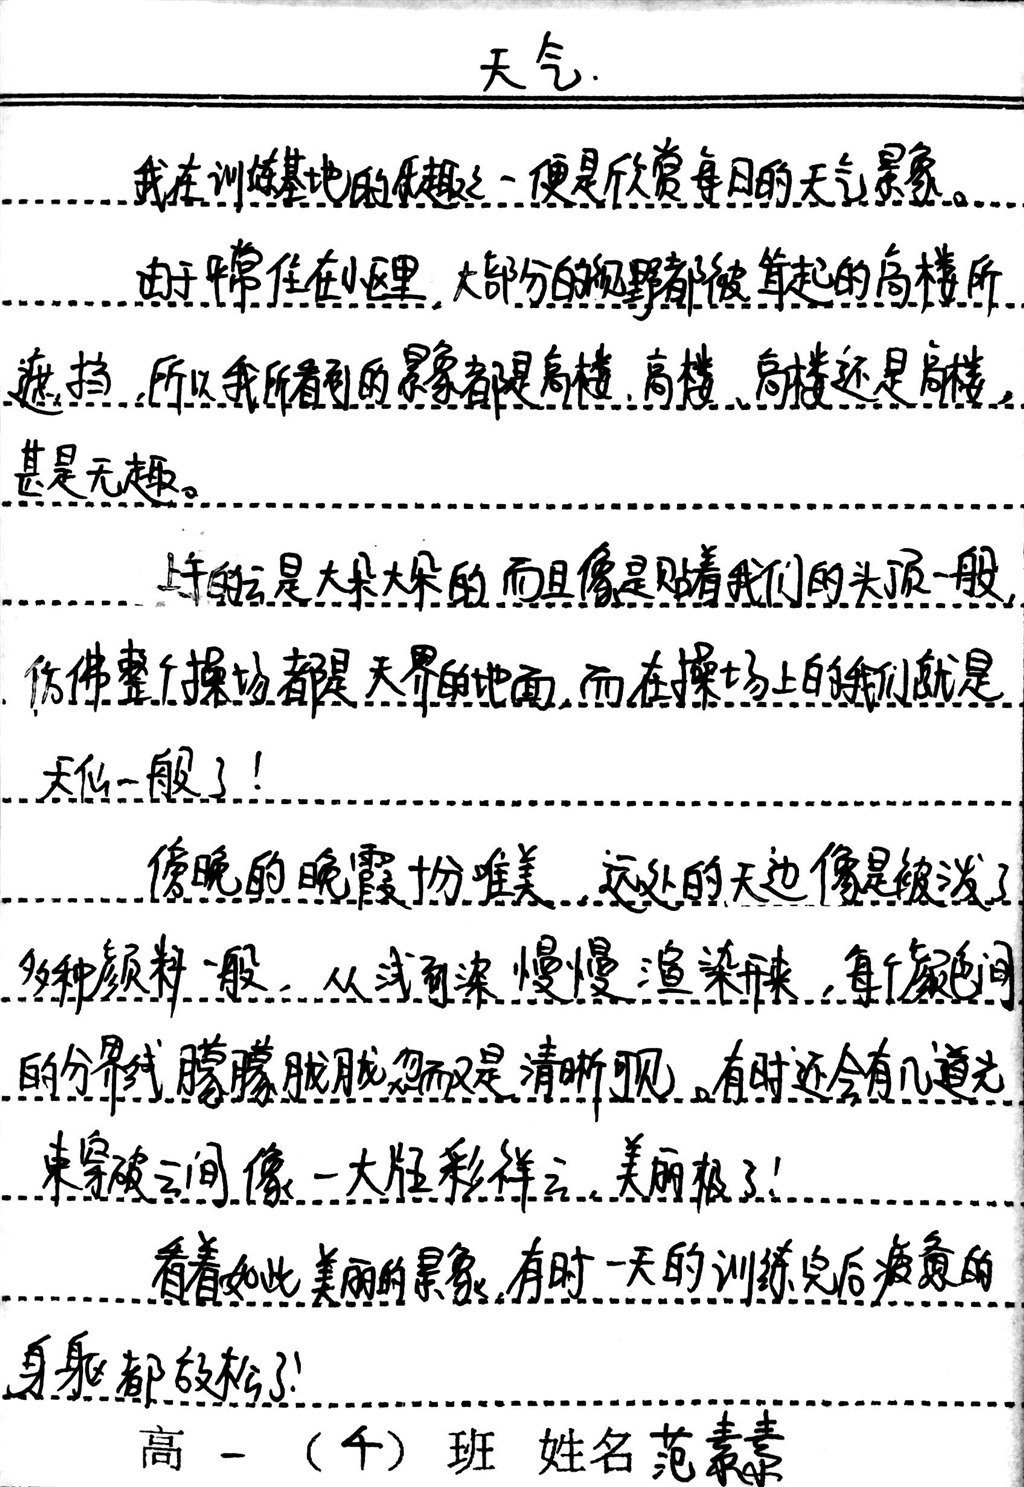 天气.
我在训练基地的乐趣之一便是欣赏每日的天气景象。
由于平常住在小区里，大部分的视野都被耸起的高楼所
遮挡，所以我所看到的景象都是高楼、高楼、高楼还是高楼，
甚是无趣。
上午的云是大朵大朵的而且像是贴着我们的头顶一般，
仿佛整个操场都是天界的地面，而在操场上的我们就是
天仙一般了！
傍晚的晚霞十分唯美，远处的天边像是被泼了
多种颜料一般，从浅到深慢慢渲染开来，每个颜色间
的分界线朦朦胧胧忽而又是清晰可见。有时还会有几道光
束穿破云间像一大片彩祥云，美丽极了！
看着如此美丽的景象，有时一天的训练完后疲惫的
身躯都放松了！
高一（千）班 姓名范素素